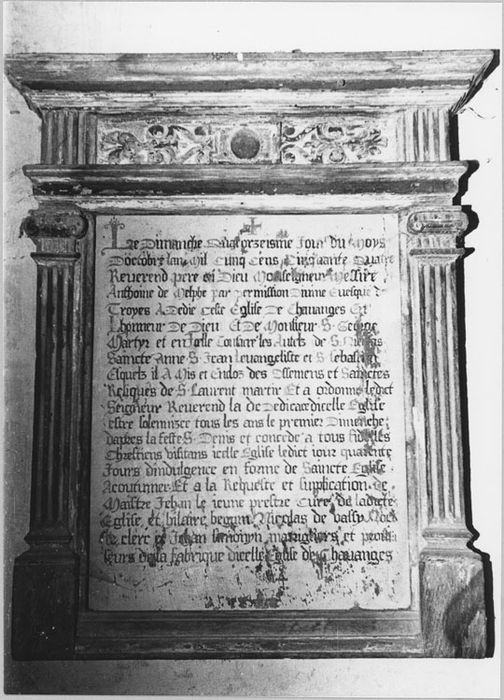 Le Dimanche vingt
Doctobre lan Mil Cinq Cens Cinquante Quatre
Reverend pere en Dieu Monseigneur Messire
Anthoine de par permission Divine Evesque de
Troyes A Dedie Ceste Eglise De Chavanges En
Lhonneur De Dieu Et De Monsieur S George
Martyr et en Icelle Consacre les Autelz de S Nicolas
Saincte Anne S Jean levangeliste et S Sebastien
Esquelz il A Mis et Encloz des Ossemens et Sainctes
Reliques de S Laurent martir Et a ordonne ledict
Seigneur Reverend la de Dedicace dicelle Eglise
estre solemnizee tous les ans le premier Dimenche
dapres la feste S Denis et concede a tous fidelles
Chrestiens visitans icelle Eglise ledict iour quarante
Jours dindulgence en forme de Saincte Eglise
Acoutumee Et a la Requeste et supplication de
Maistre Jehan le ieune prestre Cure de ladicte
Eglise et hilaire Nicolas de vassy
le clerc et Jehan marigliers et
seurs de la fabrique dicelle Eglise de Chavanges